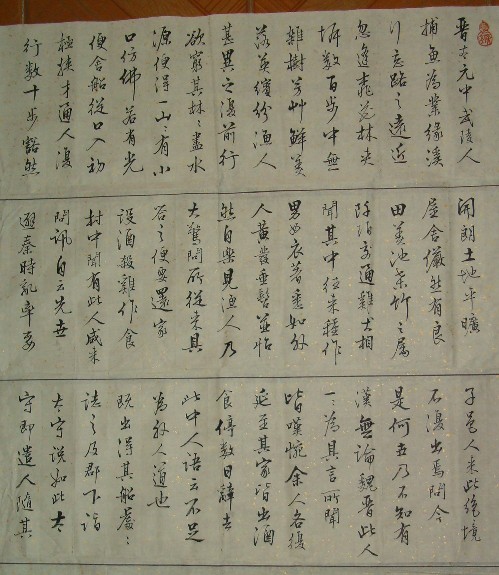 晋太元中武陵人
捕魚為業緣溪
行忘路之遠近
忽逢桃花林夾
岸數百步中無
雜樹芳草鮮美
落英繽紛漁人
甚異之復前行
欲窮其林〻盡水
源便得一山〻有小
口仿佛若有光
便舍船從口入初
極狹才通人復
行數十步豁然
開朗土地平曠
屋舍儼然有良
田美池桑竹之屬
阡陌交通雞犬相
聞其中往來種作
男女衣著悉如外
人黃髮垂髫並怡
然自樂見漁人乃
大驚問所從來具
答之便要還家
設酒殺雞作食
村中聞有此人咸來
問訊自云先世
避秦時亂率妻
子邑人來此絕境
不復出焉問今
是何世乃不知有
漢無論魏晉此人
一一為具言所聞
皆嘆惋余人各復
延至其家皆出酒
食停數日辭去
此中人語云不足
為外人道也
既出得其船處〻
誌之及郡下詣
太守說如此太
守即遣人隨其